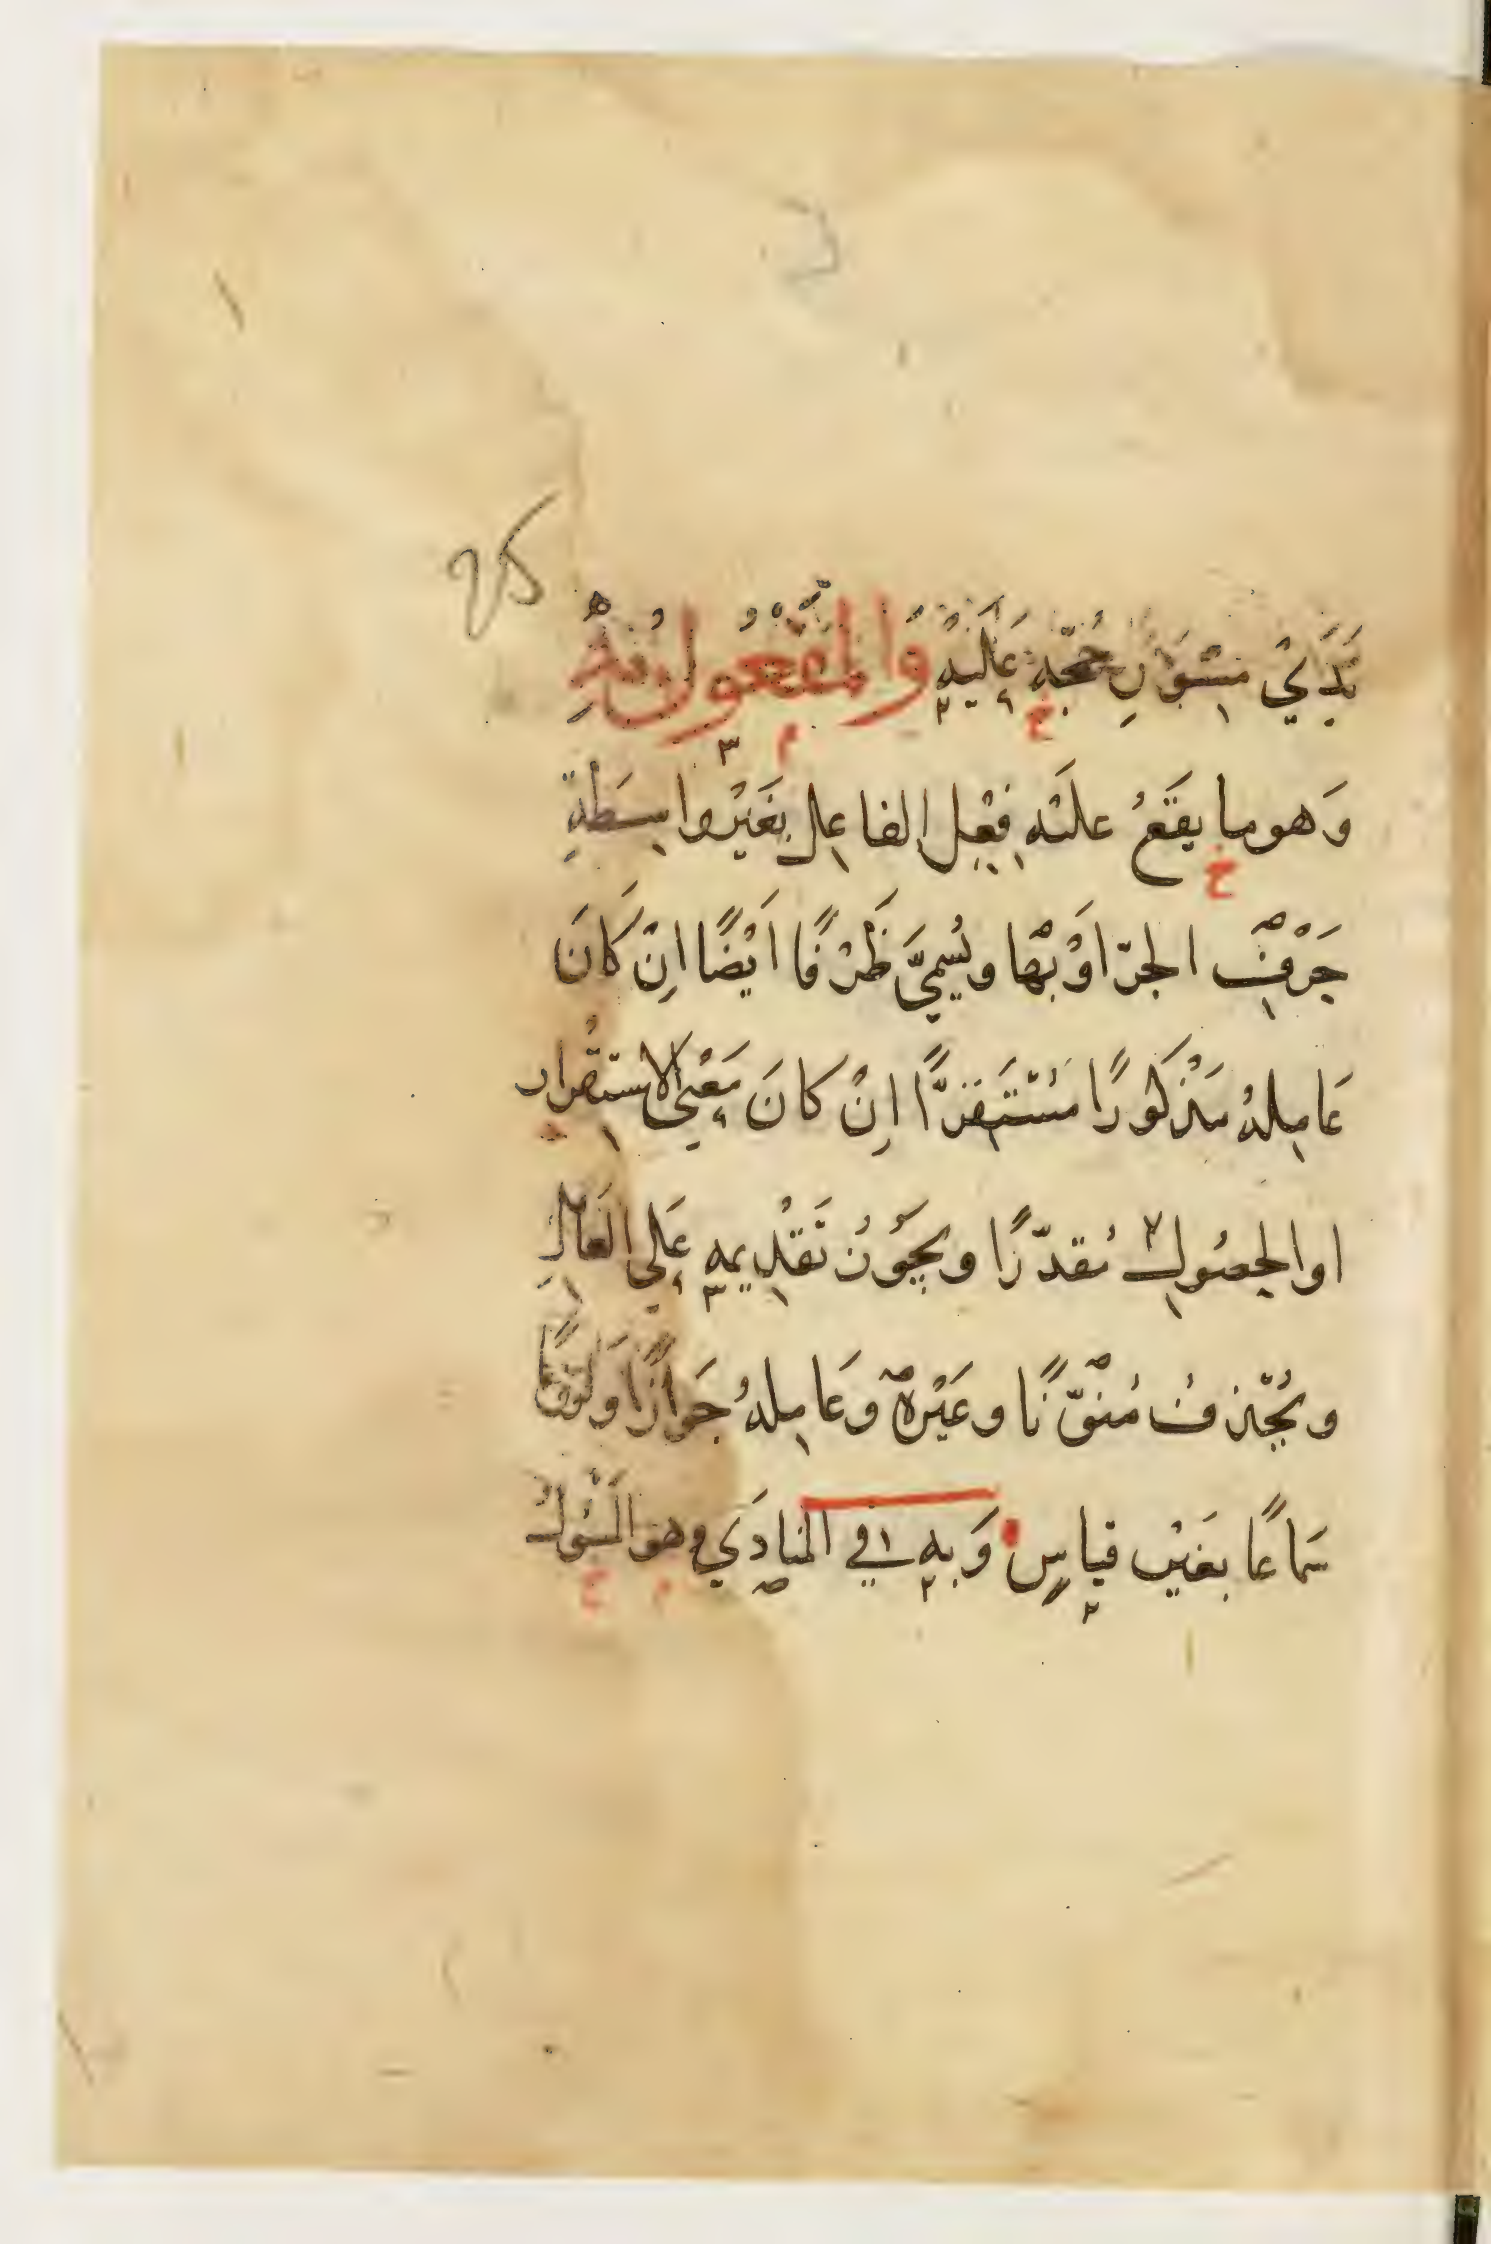 حجة عليه والمفعول به
وَهو ما يقَعُ علَيْهِ فِعْلُ الفاعِلِ بِغَيْرِ واسِطَةِ
حَرْفِ الجرّ اوْ بِهَا ويُسمىَّ ظَرْفًا اَيْضًا اِنْ كَانَ
عَامِلهُ مَذْكُورًا مُسْتَقَرًّا اِنْ كَانَ مَعْنى الاستقرار
او الحصُولِ مُقدّرًا ويجُوزُ تَقْدِيمهِ عَلى العَامِلِ
ويُحْذفُ مُنْوّنًا وغَيْرهُ وعَامِلهُ جَوَازًا
سَمَاعًا بغَيْر قياسٍ وَبهِ في المنادَي وهو